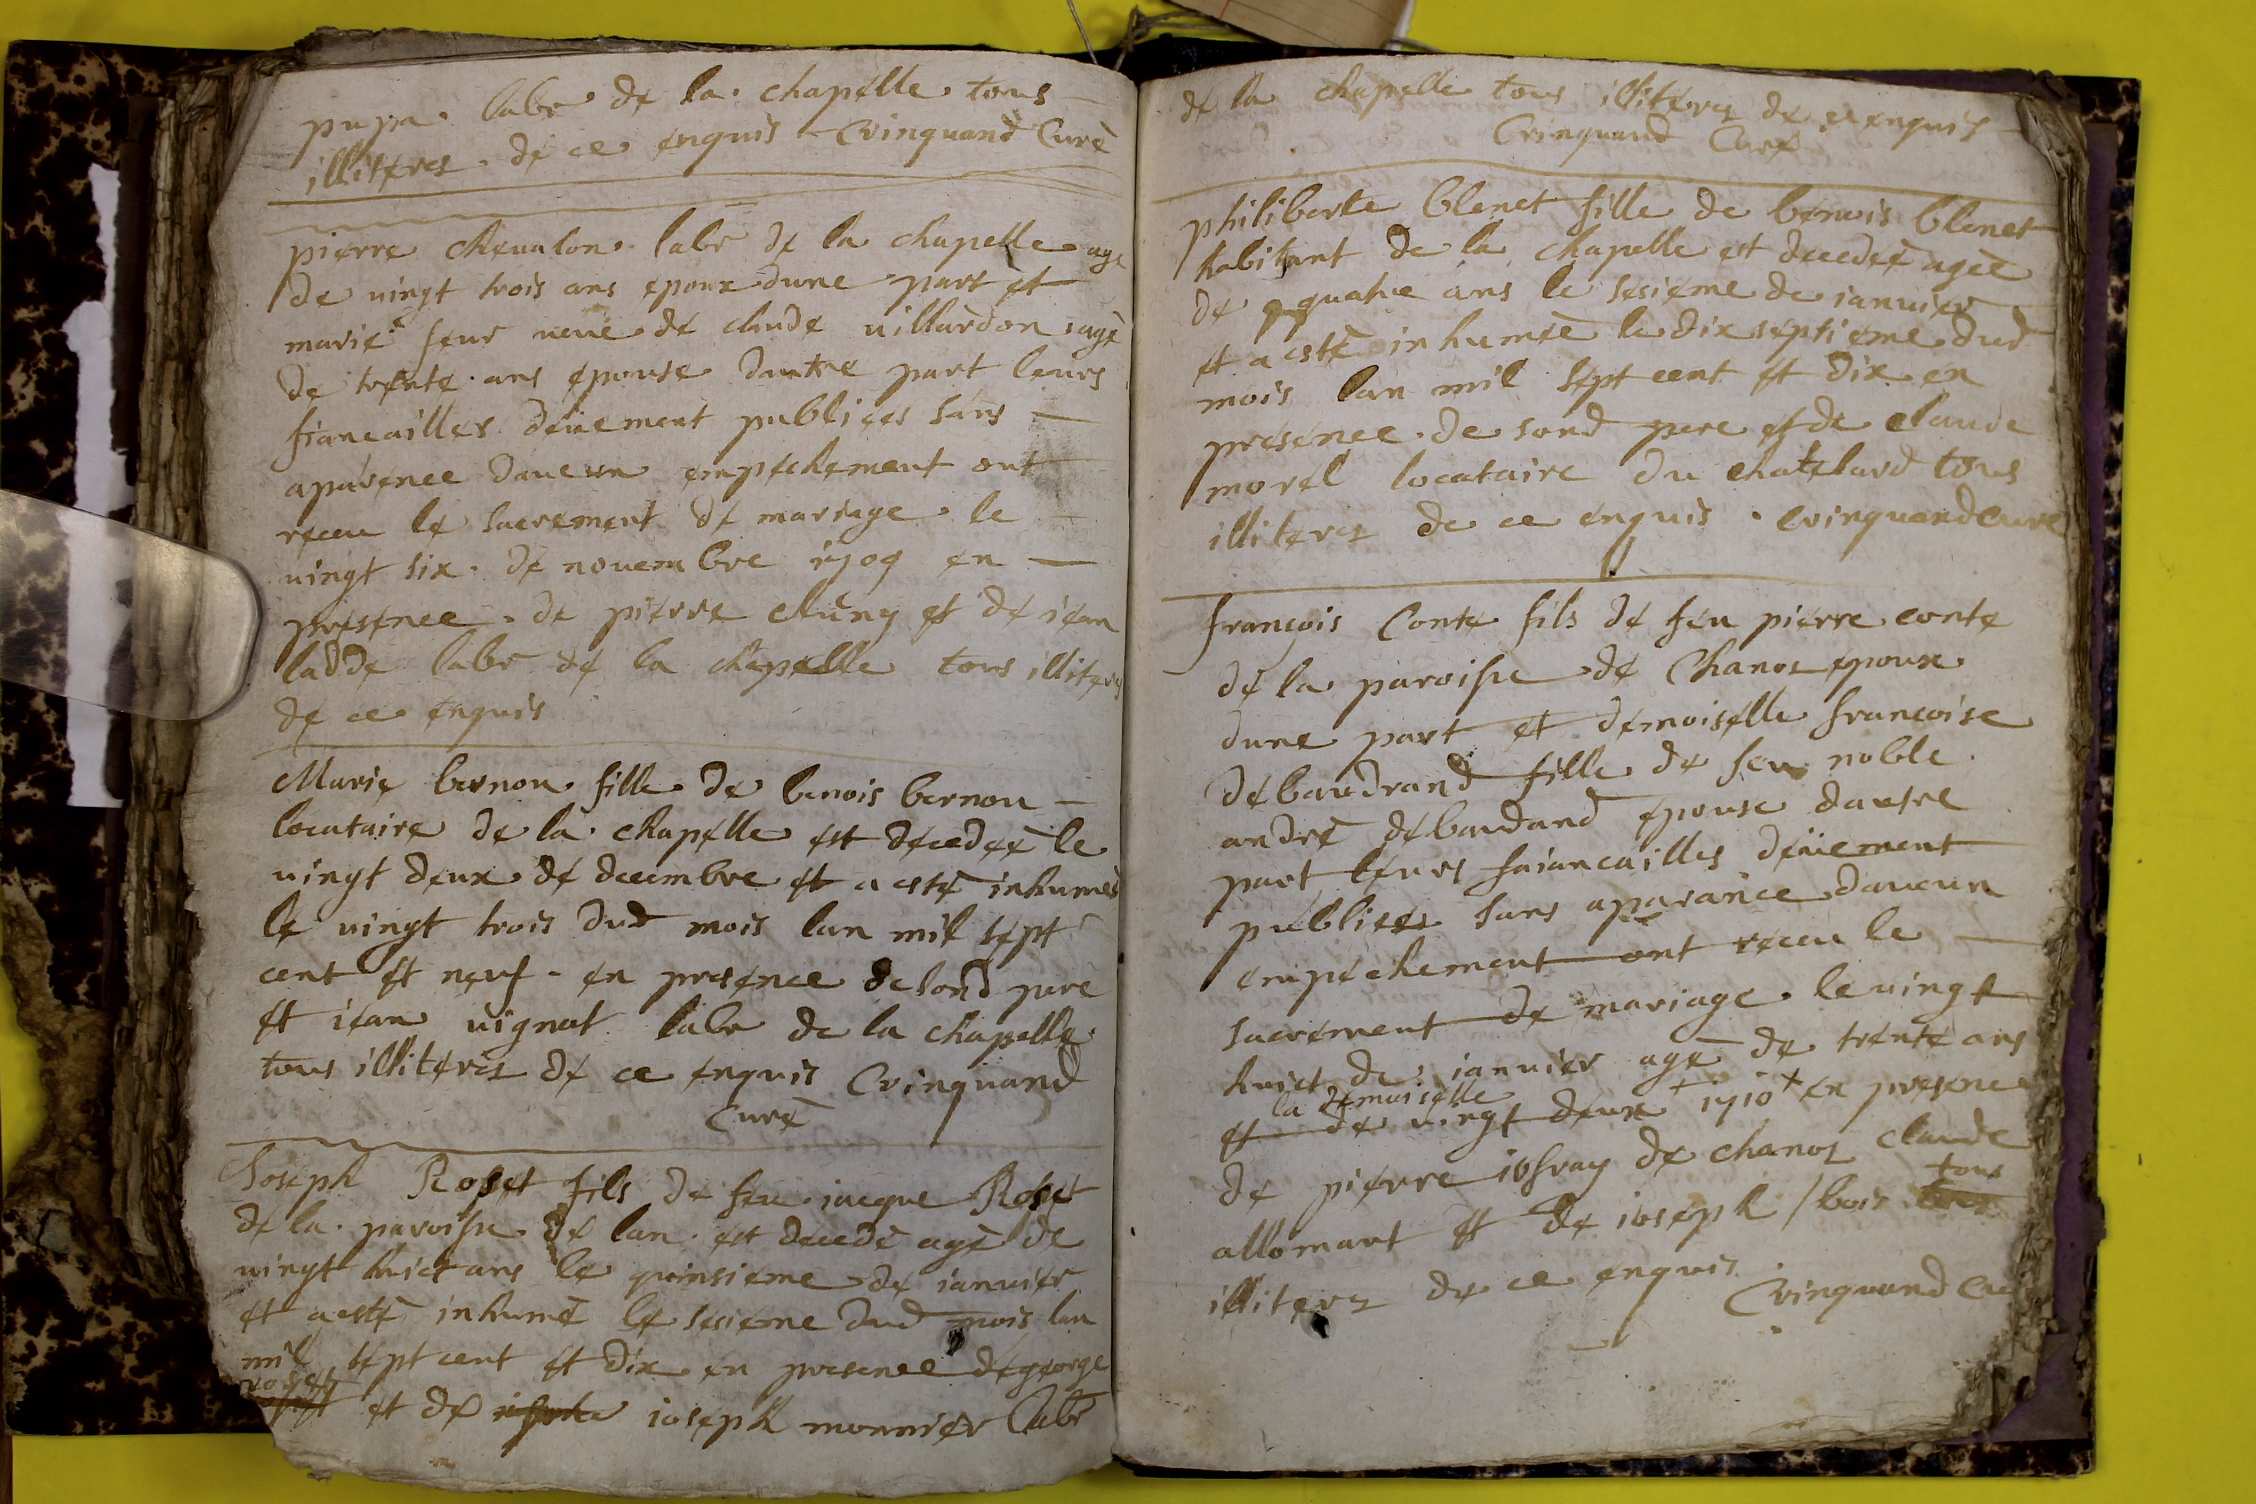 pupa. labr de la chapelle tous
illiterez de ce enquis Crinquand Curé
pierre cheualon labr de la chapelle agé
de uingt trois ans epoux dune part et
marie seur ueue de claude uillardon agé
de trente ans epouse dautre part leurs
fiancailles deüement publiées sans
aparence daucun empechement ont
receu le sacrement de mariage le
uingt six de nouembre 1709 en
presence de pierre cluny et de iean
ladde labr de la chapelle tous illiterez
de ce enquis
Marie bernon fille de benois bernon
locataire de la chapelle est decedée le
uingt deux de decembre et a esté inhumée
le uingt trois dud mois lan mil sept
cent et neuf en presence de sond pere
et iean uignat labr de la chapelle
tous illiterez de ce enquis Crinquand
Curé
Joseph Roset fils de feu iacque Roset
de la paroisse de lan est decedé agé de
uingt huict ans le quinsieme de ianuier
et a esté inhumé le sesieme dud mois lan
mil sept cent et dix en presence de george
roset et de ioseph monnier labr
de la chapelle tous illiterez de ce enquis
Crinquand Curé
philiberte blenet fille de benois blenet
habitant de la chapelle est decedée agée
de quatre ans le sesieme de ianuier
et a esté inhumée le dix septieme dud
mois lan mil sept cent et dix en
presence de sond pere et de claude
morel locataire du chatelard tous
illiterez de ce enquis crinquand curé
françois Conte fils de feu pierre conte
de la paroisse de Chanoz epoux
dune part et demoiselle francoise
debaudrand fille de feu noble
andré debaudand epouse dautre
part leurs faiancailles deüement
publiées sans aparance daucun
empechement ont receu le
sacrement de mariage le uingt
huict de ianuier agé de trente ans
la demoiselle
et de uingt deux + 1710 + en presence
de pierre iosray de chanoz claude
allomant et de ioseph / bois tous
illiterez de ce enquis
Crinquand Cu